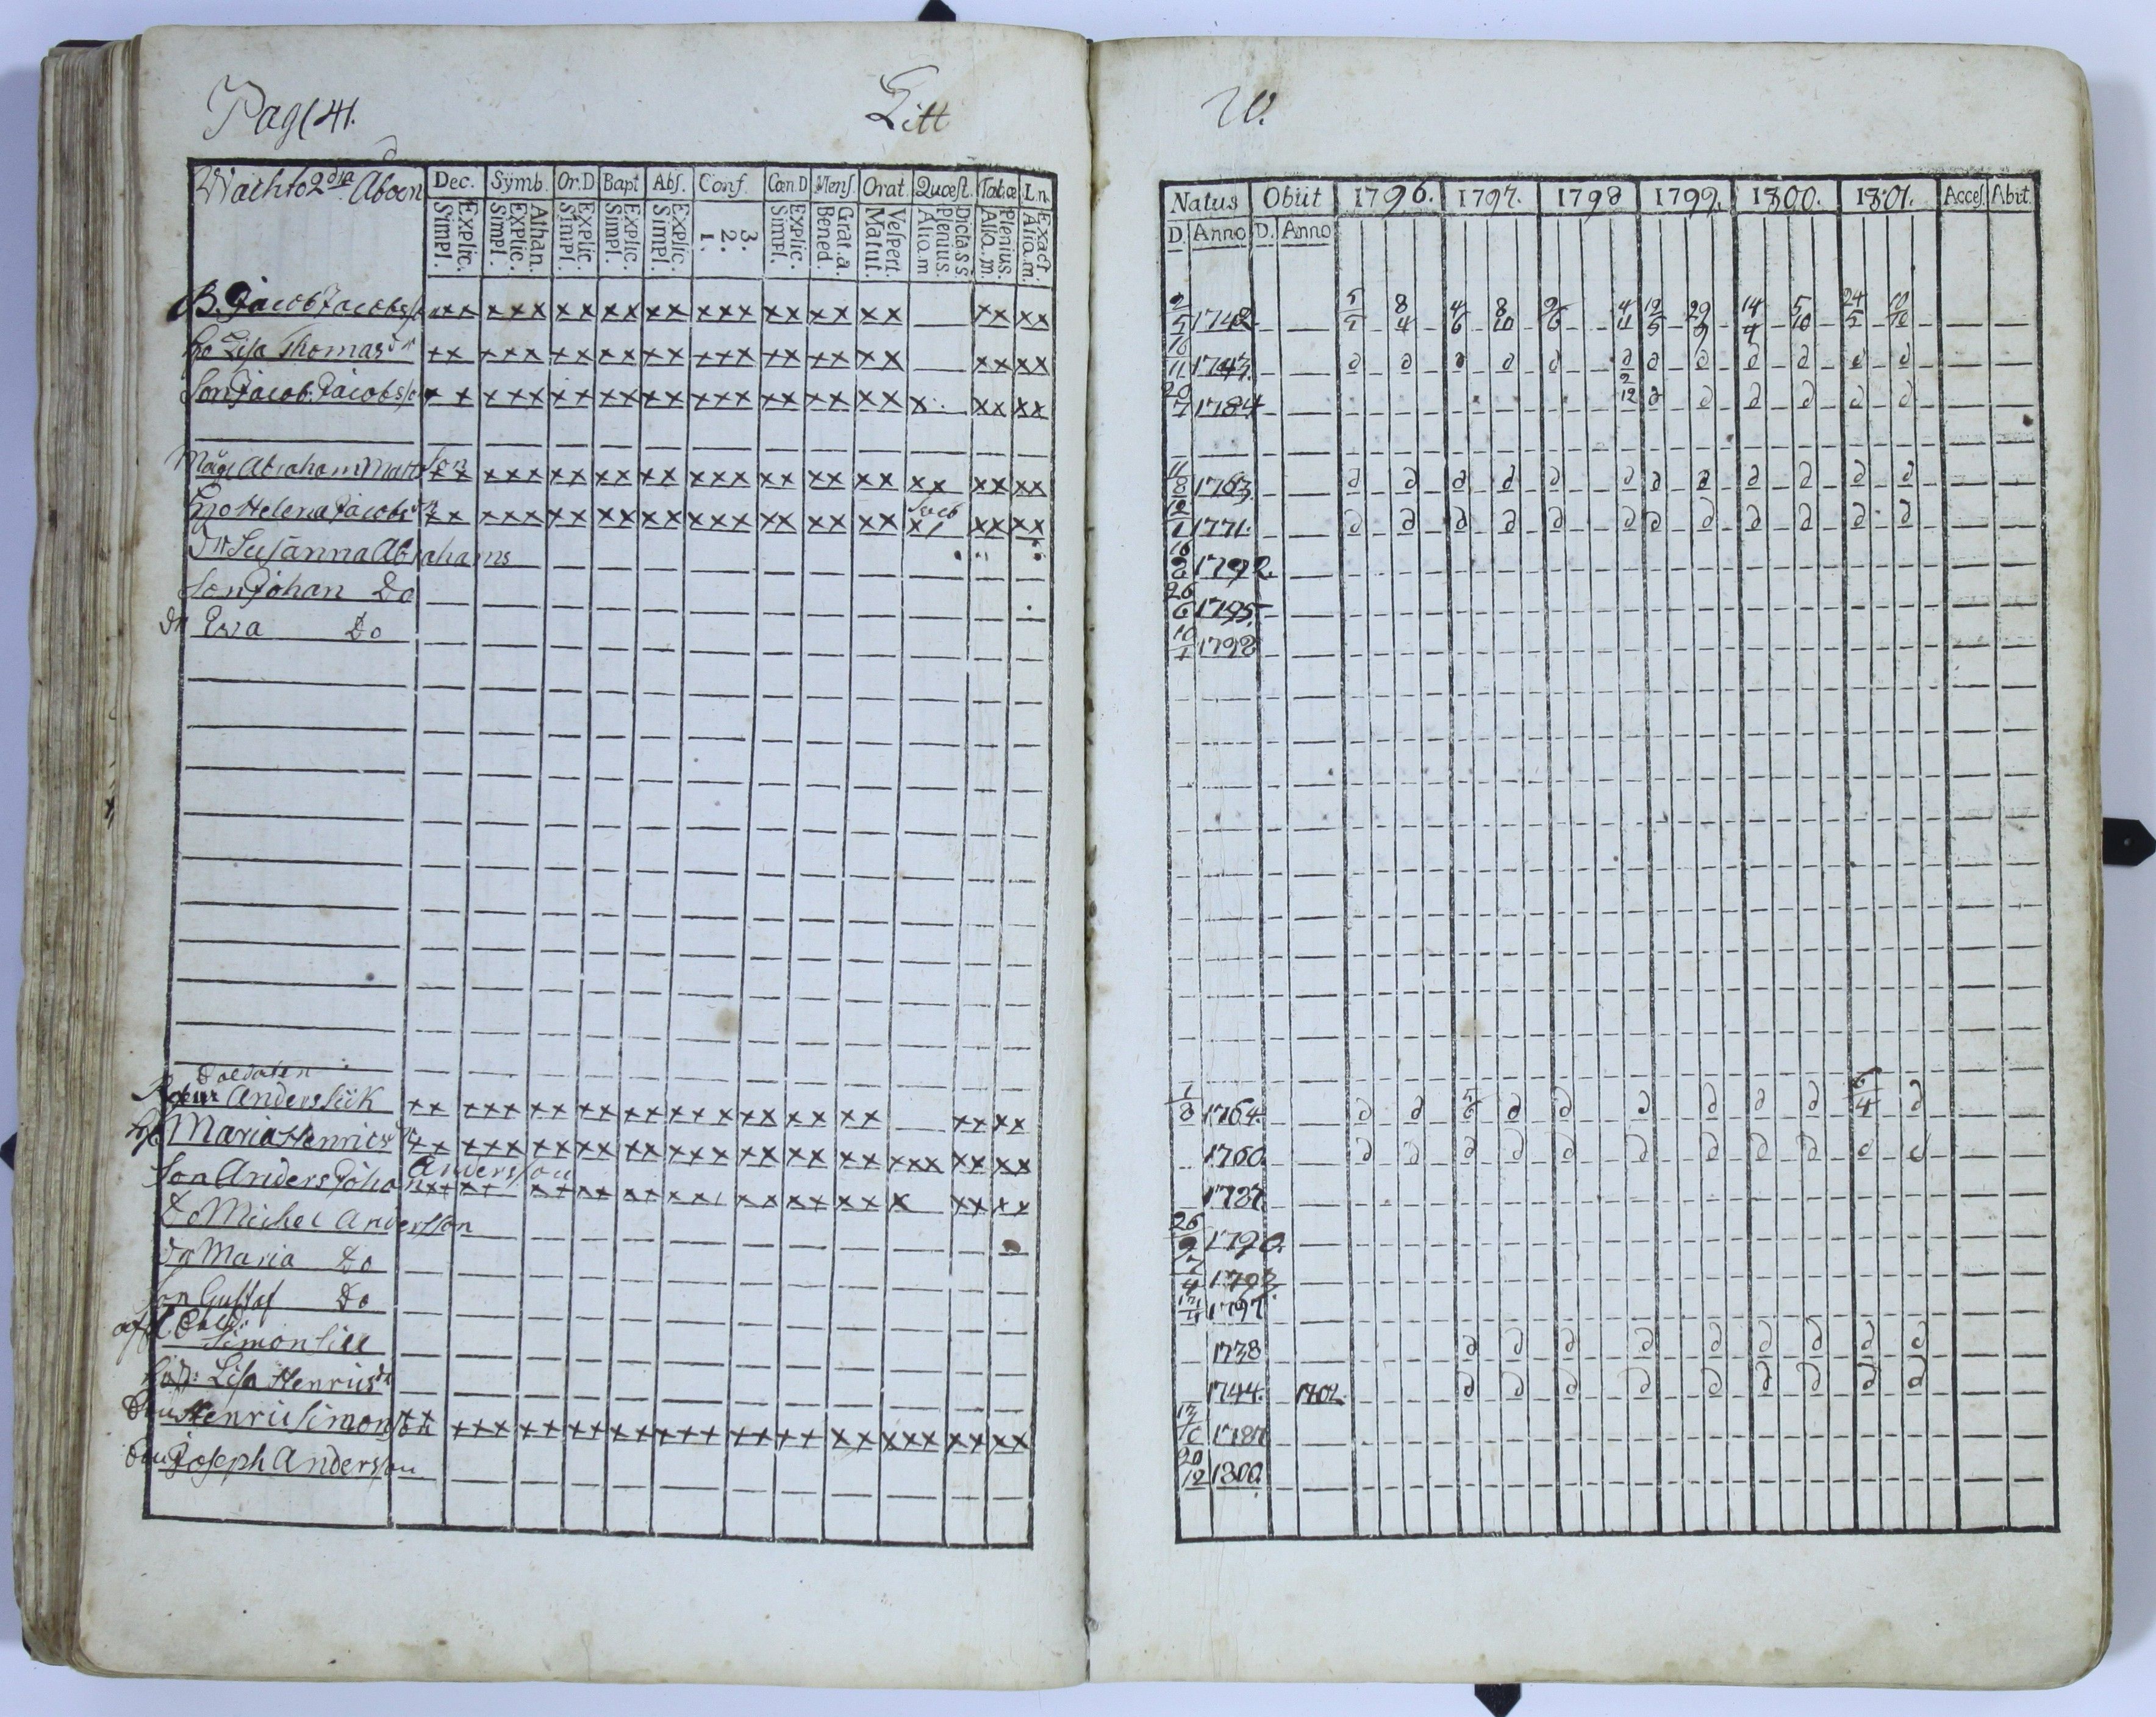 Pag 141. Litt W.
Wachto 2dra Aboon
Dec. Symb. Or.D Bapt Abs. Conf. Cœn.D Mens. Orat. Quœst. Tab.œ L.n.
Explic. Simpl. Athan. Explic. Simpl. Explic. Simpl. Explic. Simpl. Explic. Simpl. 3. 2. 1. Explic. Simpl. Grat.a. Bened. Vespert. Matut. Dicta.s.s. Plenius. Alio.m Plenius. Alio.m. Exact. Alio.m.
Natus Obiit 1796. 1797. 1798 1799. 1800. 1801. Acces. Abit.
D. Anno D. Anno
B. Jacob Jacobs xx xxx xx xx xx xxx xx xx xx xx xx 2/5 1742 5/2 8/4 4/6 8/10 2/6 4/11 12/5 29/9 14/4 5/10 24/5 10/10
ho Lisa Thomas dr xx xxx xx xx xx xxx xx xx xx xx xx 16/11 1743
Son Jacob Jacobs xx xxx xx xx xx xxx xx xx xx x xx xx 20/7 1784 2/12
Måg Abraham Matts son xx xxx xx xx xx xxx xx xx xx xx xx xx 11/8 1763
Ho Helena Jacobs dr xx xxx xx xx xx xxx xx xx xx xx xx 12/1 1771.
Dr Susanna Abrahams 16/2 1792.
Son Johan Do 26/6 1795.
Dr Eva Do 10/1 1798
Soldaten
Anders Siik xx xxx xx xx xx xxx xx xx xx xx xx 1/8 1764. 5/6 6/4
ho Maria Henrics dr xx xxx xx xx xx xxx xx xx xx xxx xx xx 1760
Andersson
Son Anders Joha 1787.
Do Michel Andersson 26/9 1790.
Dr Maria Do 1793
Son Gustaf Do 1797
Simon Siik 1738
Lisa Henrics dr 1744. 1802.
Henric Simonsson xx xxx xx xx xx xxx xx xx xx xxx xx xx 1787
Joseph Andersson 20/12 1800.